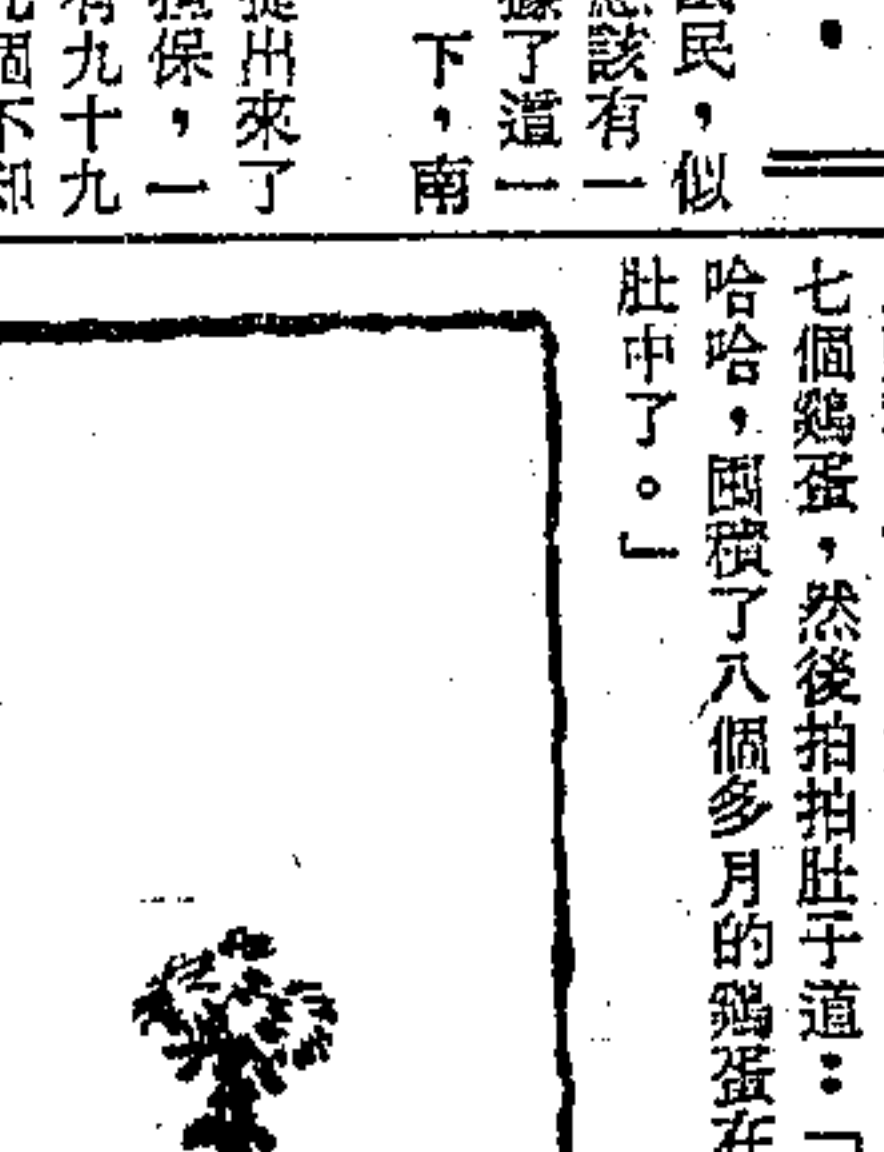 民，似
該有一
了這一
下，南
出來了
保，一
有九十九
個不却
七個鷄蛋，然後拍拍肚子道：「
哈哈，囤積了八個多月的鷄蛋在
肚中了。」